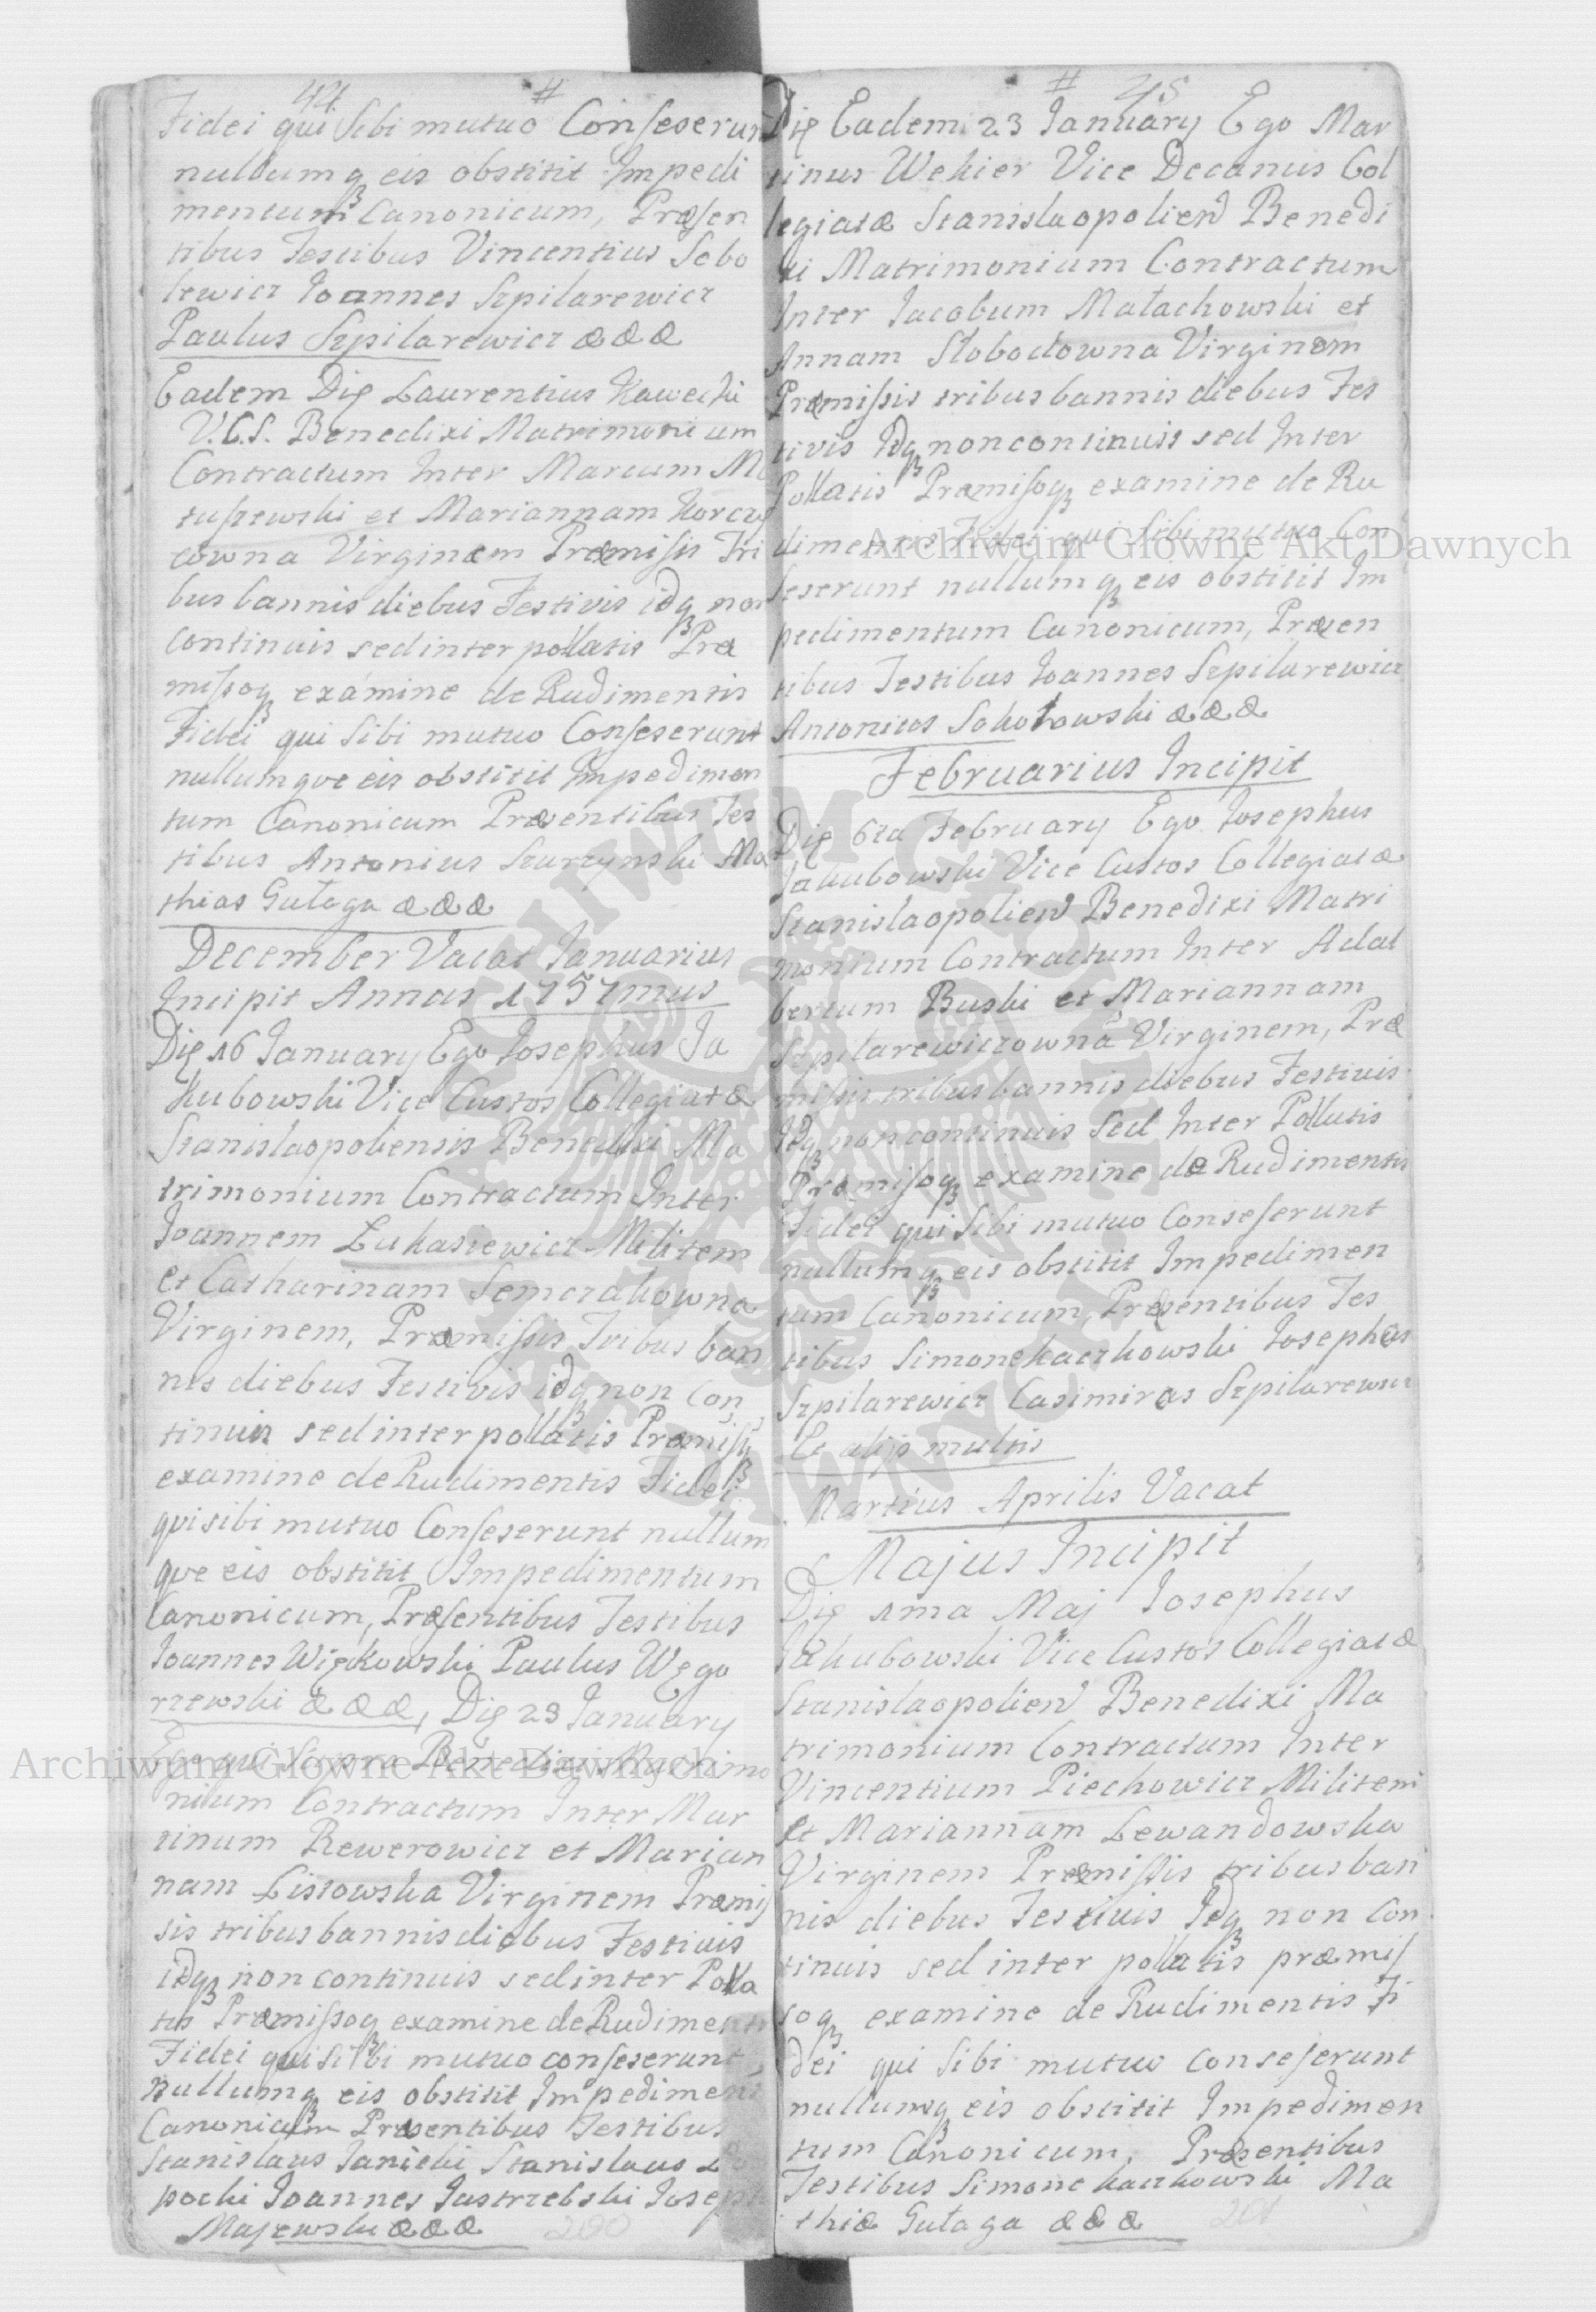 44 #
Fidei qui Sibi mutuo Conseserun
nullumq eis obstitit Impedi
mentum Canonicum, Præsen
tibus Testibus Vincentius Sobo
lewicz Joannes Szpilarewicz
Paulus Szpilarewicz &&&
Eadem Die Laurentius Kawecki
V.C.S. Benedixi Matrimonium
Contractum Inter Marcum Ma
tuszewski et Mariannam
cowna Virginem Præmissis Tri
bus bannis diebus Festivis idq non
continuis sed inter pollatis Præ
missoq examine de Rudimentis
Fidei qui Sibi mutuo Conseserunt
nullumque eis obstitit Impedimen
tum Canonicum Præsentibus Tes
tibus Antonius Szurzynski Ma
thias Gułaga &&&
December Vacat Januarius
Incipit Annus 1757mus
Die 16 January Ego Josephus Ja
kubowski Vice Custos Collegiatæ
Stanislaopoliensis Benedixi Ma
trimonium Contractum Inter
Joannem Łukasiewicz Militem
et Catharinam Semczakowna
Virginem, Præmissis Tribus ban
nis diebus Festivis idq non Con
tinuis sed inter pollatis Præmissq
examine de Rudimentis Fidei
qui sibi mutuo Conseserunt nullum
que eis obstitit Impedimentum
Canonicum, Præsentibus Testibus
Joannes Więckowski Paulus Węgo
rzewski &&&, Die 23 January
Ego qui Supra Benedixi Matrimo
nium Contractum Inter Mar
tinum Rewerowicz et Marian
nam Listowska Virginem Præmis
sis tribus bannis diebus Festiuis
idq non continuis sed inter Polla
tis Præmissoq examine de Rudimentis
Fidei qui Sibi mutuo conseserunt
nullumq eis obstitit Impediment
Canonicum Præsentibus Testibus
Stanislaus Janicki Stanislaus
pocki Joannes Jastrzebski Joseph
Majewski &&& 200
# 45
Die Eadem 23 January Ego Mar
tinus Wekier Vice Decanus Col
legiatæ Stanislaopolien Benedi
xi Matrimonium Contractum
Inter Jacobum Małachowski et
Annam Słobodowna Virginem
Præmissis tribus bannis diebus Fes
tivis Idq non continuis sed Inter
Pollatis Præmissoq examine de Ru
dimentis Fidei qui Sibi mutuo Con
seserunt nullumq eis obstitit Im
pedimentum Canonicum, Præsen
tibus Testibus Joannes Szpilarewicz
Antonius Sokołowski &&&
Februarius Incipit
Die 6ta February Ego Josephus
Jakubowski Vice Custos Collegiatæ
Stanislaopolien Benedixi Matri
monium Contractum Inter Adal
bertum Buski et Mariannam
Szpilarewiczowna Virginem, Præ
missis tribus bannis diebus Festiuis
Idq non continuis Sed Inter Pollatis
Præmissoq examine de Rudimentis
Fidei qui Sibi mutuo Conseserunt
nullumq eis obstitit Impedimen
tum Canonicum, Præsentibus Tes
tibus Simone Kaczkowski Josephus
Szpilarewicz Casimirus Szpilarewicz
Et alijs multis
Martius Aprilis Vacat
Majus Incipit
Die 1ma Maj Josephus
Jakubowski Vice Custos Collegiatæ
Stanislaopolien Benedixi Ma
trimonium Contractum Inter
Vincentium Piechowicz Militem
et Mariannam Lewandowska
Virginem Præmissis tribus ban
nis diebus Festiuis Idq non Con
tinuis sed inter pollatis præmis
soq examine de Rudimentis Fi
dei qui Sibi mutuo Conseserunt
nullumq eis obstitit Impedimen
tum Canonicum, Præsentibus
Testibus Simone Kaczkowski Ma
thiæ Gułaga &&& 201
Archiwum Główne Akt Dawnych
Archiwum Główne Akt Dawnych
ARCHIWUM GŁÓWNE AKT DAWNYCH